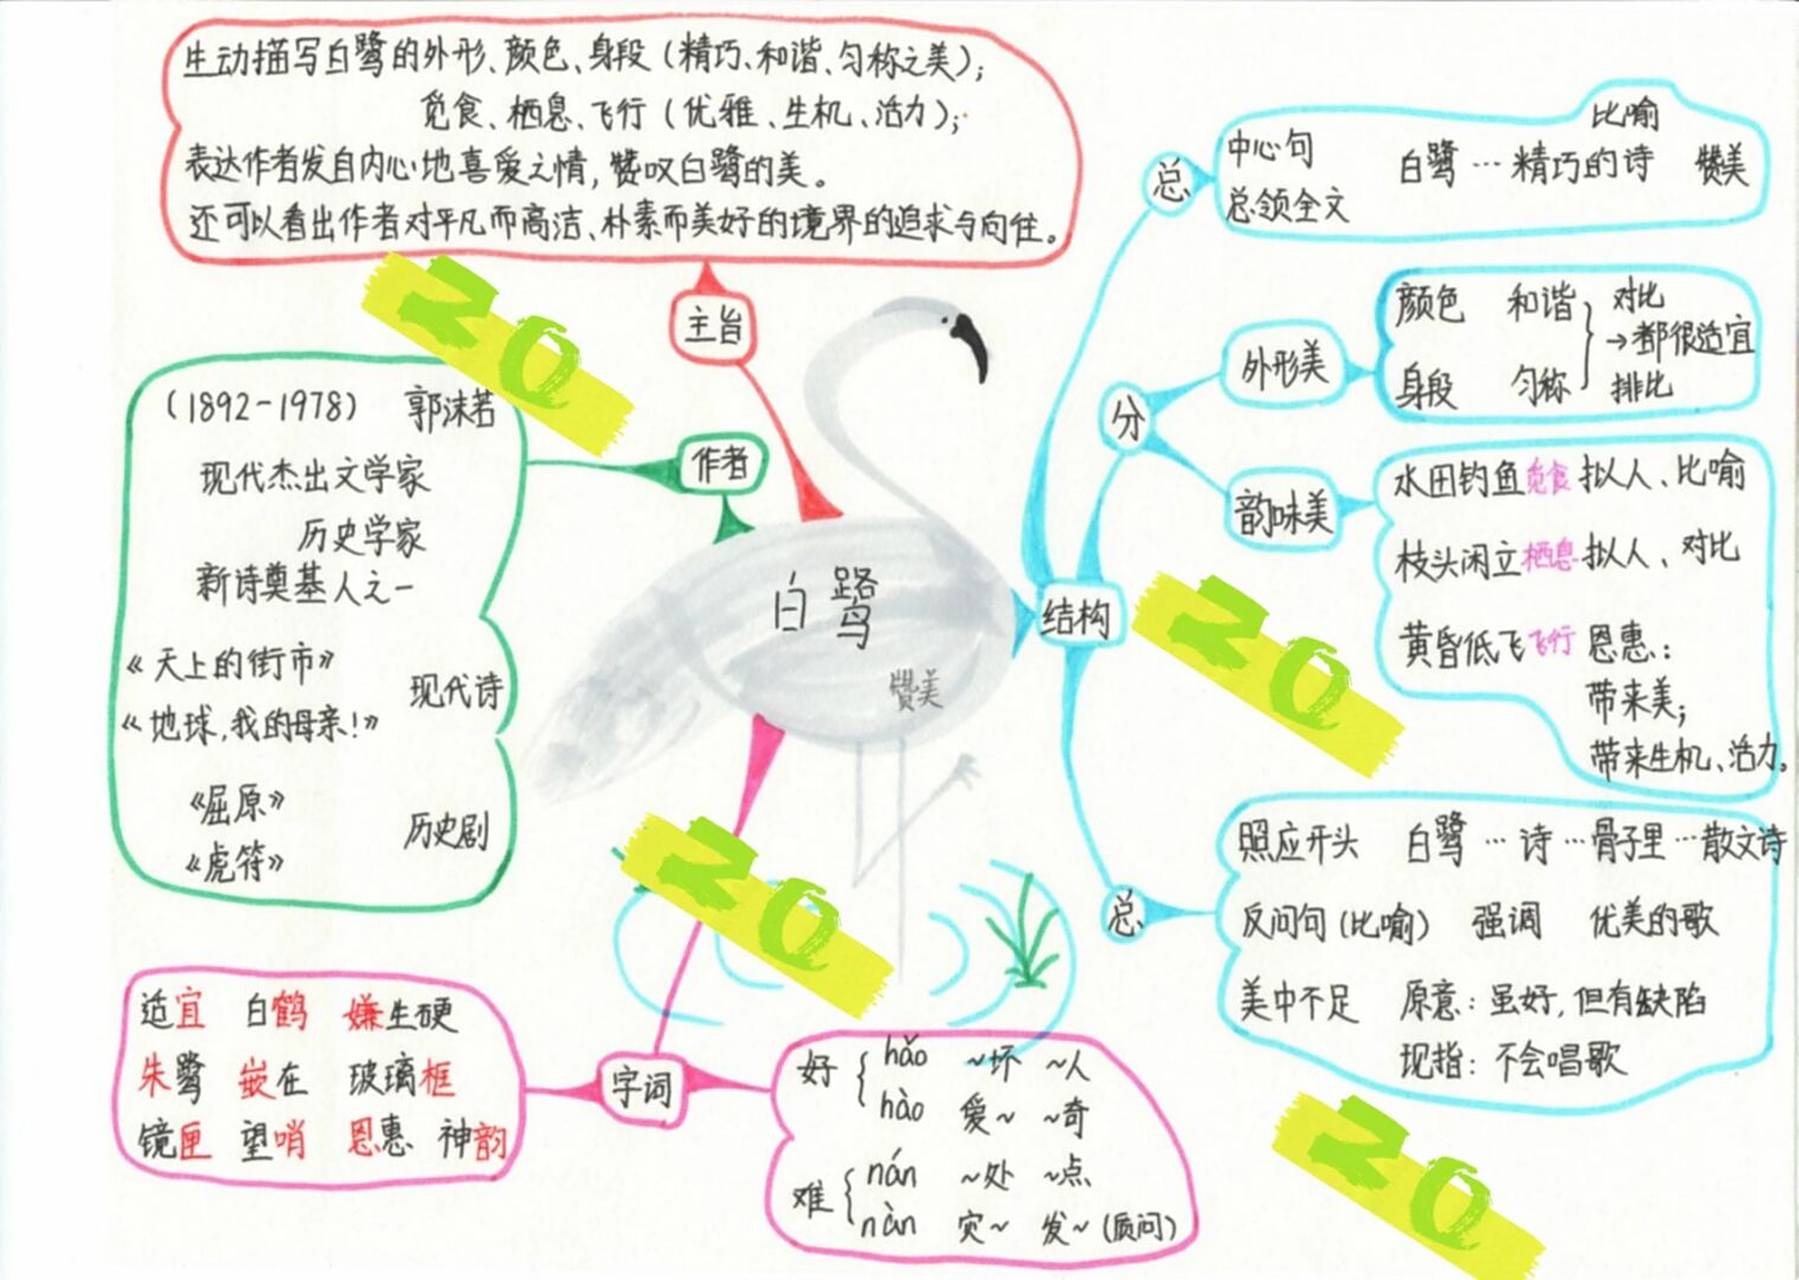 生动描写白鹭的外形、颜色、身段（精巧、和谐、匀称之美）；
觅食、栖息、飞行（优雅、生机、活力）；
表达作者发自内心地喜爱之情，赞叹白鹭的美。
还可以看出作者对平凡而高洁、朴素而美好的境界的追求与向往。
主旨
(1892-1978) 郭沫若
现代杰出文学家
历史学家
新诗奠基人之一
《天上的街市》
现代诗
《地球，我的母亲！》
《屈原》
历史剧
《虎符》
作者
白鹭
赞美
结构
总
中心句 白鹭…精巧的诗 比喻 赞美
总领全文
分
外形美
颜色 和谐 对比
→都很适宜
身段 匀称 排比
韵味美
水田钓鱼觅食 拟人、比喻
枝头闲立栖息 拟人、对比
黄昏低飞飞行 恩惠：
带来美；
带来生机、活力。
总
照应开头 白鹭…诗…骨子里…散文诗
反问句（比喻） 强调 优美的歌
美中不足 原意：虽好，但有缺陷
现指：不会唱歌
字词
适宜 白鹤 嫌生硬
朱鹭 嵌在 玻璃框
镜匣 望哨 恩惠 神韵
好 { hǎo ~坏 ~人
hào 爱~ ~奇
难 { nán ~处 ~点
nàn 灾~ 发~（质问）
ZO
ZO
ZO
ZO